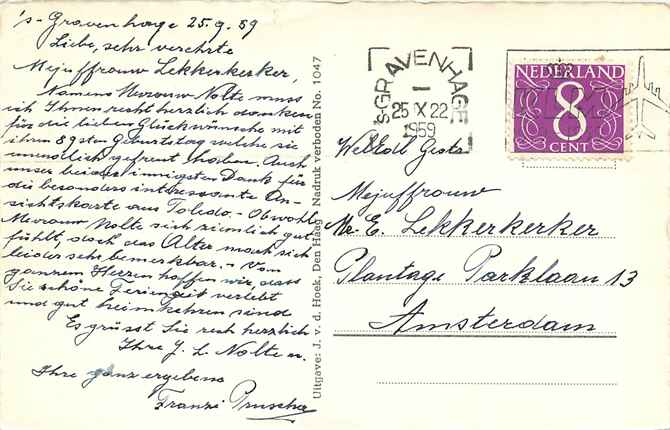 's-Gravenhage 25.9.59
Liebe, sehr verehrte
Mejuffrouw Lekkerkerker,
Namens Mevrouw Nolte muss
ich Ihnen recht herzlich danken
für die lieben Glückwünsche mit
ihrem 89sten Geburtstag welche sie
unendlich gefreut haben. Auch
unser beider innigsten Dank für
die besonders interessante An-
sichtskarte aus Toledo. - Obwohl
Mevrouw Nolte sich ziemlich gut
fühlt, doch das Alter macht sich
leider sehr bemerkbar. - Von
ganzem Herzen hoffen wir, dass
Sie schöne Ferienzeit verlebt
und gut heimkehren sind
Es grüsst Sie rech herzlich
Ihre J. L. Nolte
Ihre ganz ergebene
Franzi
Uitgave: J. v. d. Hoek, Den Haag Nadruk verboden No. 1047
'SGRAVENHAGE
25 IX 22
1959
NEDERLAND
8
CENT
Mejuffrouw
E. Lekkerkerker
Plantage Parklaan 13
Amsterdam